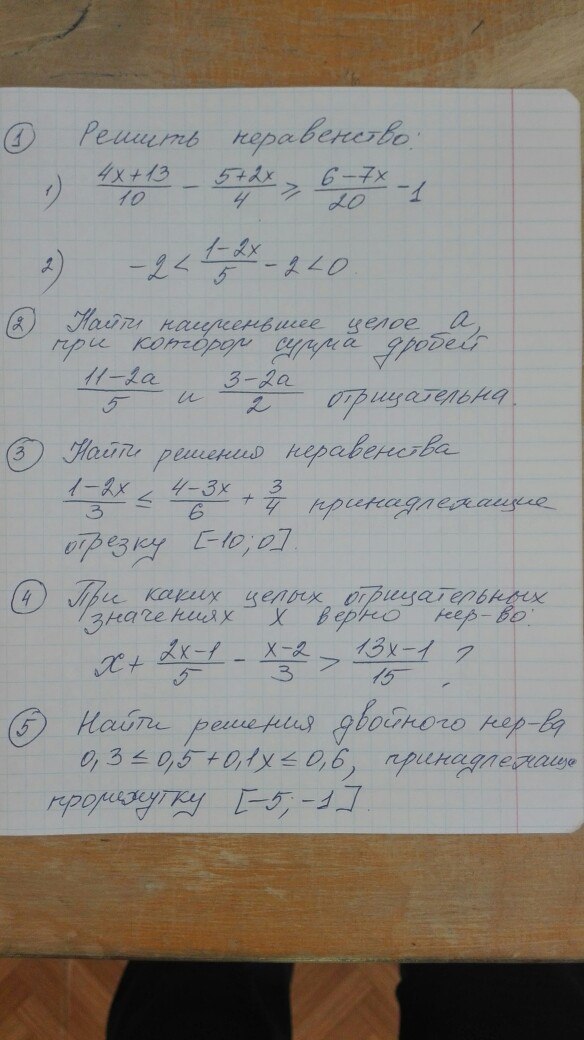 ① Решить неравенство:
1) (4x+13)/10 − (5+2x)/4 ≥ (6−7x)/20 − 1
2) −2 < (1−2x)/5 − 2 < 0
② Найти наименьшее целое a,
при котором сумма дробей
(11−2a)/5 и (3−2a)/2 отрицательна.
③ Найти решения неравенства
(1−2x)/3 ≤ (4−3x)/6 + 3/4 принадлежащие
отрезку [−10; 0].
④ При каких целых отрицательных
значениях x верно нер-во:
x + (2x−1)/5 − (x−2)/3 > (13x−1)/15 ?
⑤ Найти решения двойного нер-ва
0,3 ≤ 0,5 + 0,1x ≤ 0,6, принадлежащие
промежутку [−5; −1].